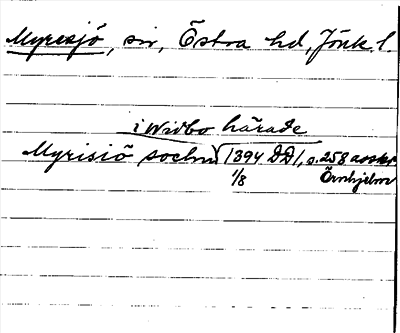 Myresjö, sn, Östra hd, Jönk. l.
i Widbo härade
Myrisiö sochn 1394 DD 1, s. 258 avskr.
1/8 Örnhjelm